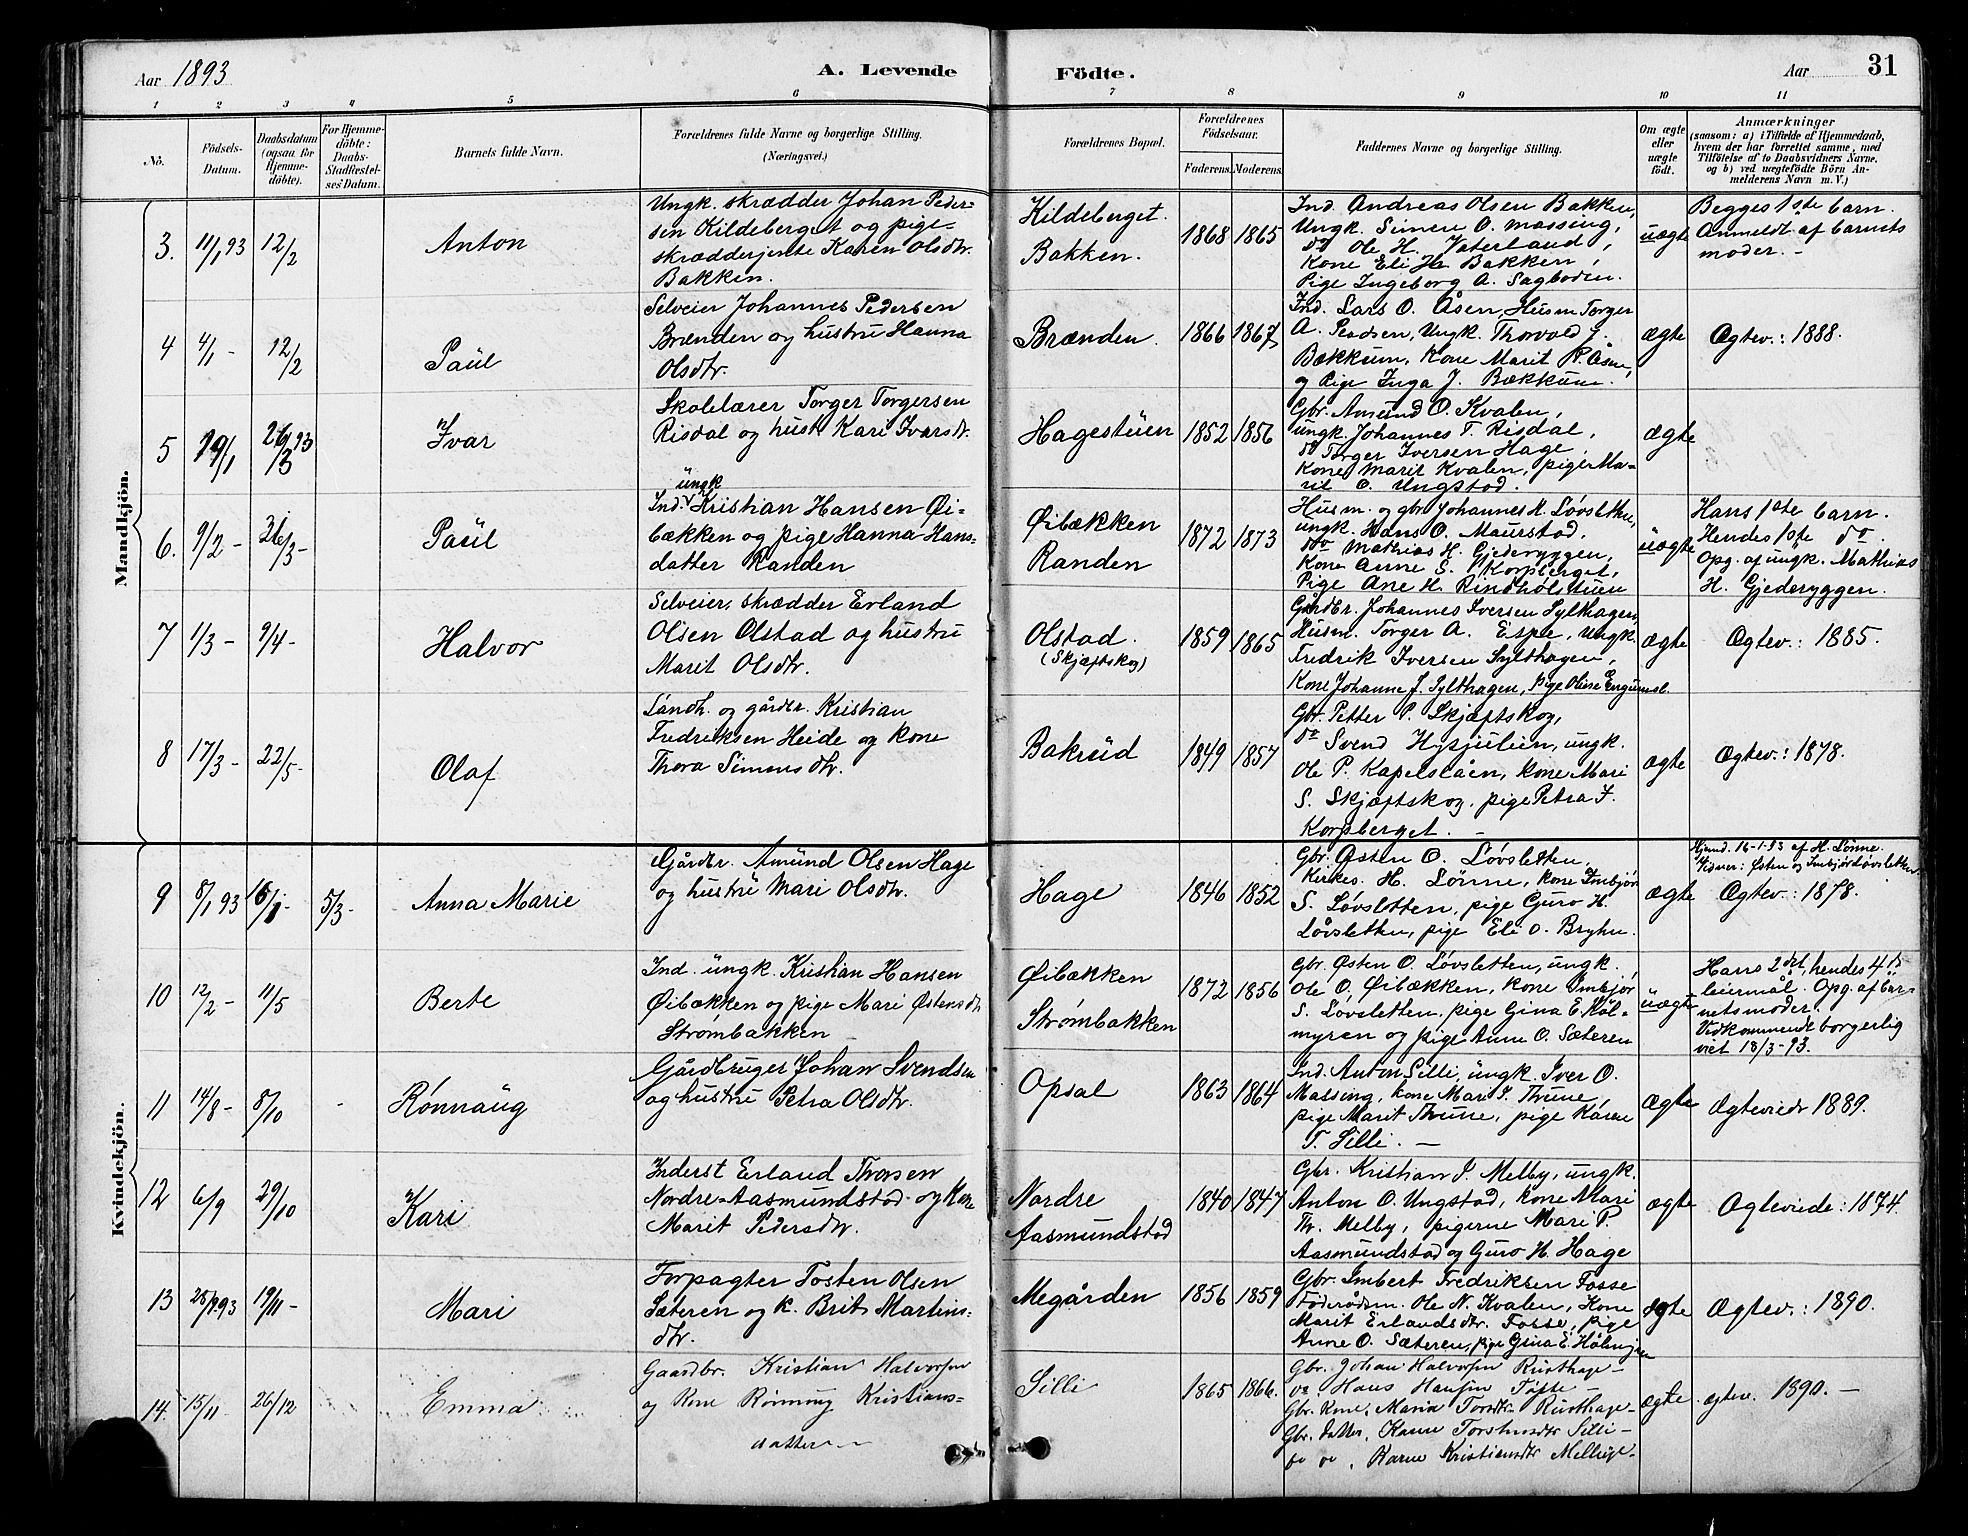 Aar 1893
A. Levende
Födte.
Aar
31
1 2 3 4 5 6 7 8 9 10 11
No.
Födsels-
Datum.
Daabsdatum
(ogsaa for
Hjemme-
döbte).
For Hjemme-
döbte:
Daabs-
Stadfæstel-
ses Datum.
Barnets fulde Navn.
Forældrenes fulde Navne og borgerlige Stilling.
(Næringsvei.)
Forældrenes Bopæl.
Forældrenes
Födselsaar.
Faderens. Moderens.
Faddernes Navne og borgerlige Stilling.
Om ægte
eller
uægte
født.
Anmærkninger
(saasom: a) i Tilfælde af Hjemmedaab,
hvem der har forrettet samme, med
Tilföielse af to Daabsvidners Navne,
og b) ved uægtefödte Börn An-
melderens Navn m. V.)
Mandkjön.
3. 11/1 93 12/2
Anton
Ungk. skrædder Johan Peder-
sen Kildeberget og pige-
skrædderjente Karen Olsdtr.
Bakken.
Kildeberget.
Bakken.
1868 1865
Ind. Andreas Olsen Bakken,
Ungk. Simen O. Massing,
do Ole H. Vaterland,
Kone Eli H. Bakken,
Pige Ingeborg A. Sagboden.
uægte
Begges 1ste barn.
Anmeldt af barnets
moder. -
4 4/1 - 12/2
Paul
Selveier Johannes Pedersen
Brænden og hustru Hanna
Olsdtr.
Brænden
1866 1867
Ind. Lars O. Åsen, Husm Torger
A. Ungk. Thorvald J.
Bækkum, Kone Marit P. Åsen,
og Pige Inga J. Bækkum.
ægte
Ægtev.: 1888.
5 19/1 26/3 93
Ivar
Skolelærer Torger Torgersen
Risdal og hust. Kari Ivarsdr.
Hagestuen
1852 1856
Gbr. Amund O. Kvalen,
ungk. Johannes T. Risdal,
do Torger Iversen Hage,
Kone Marit Kvalen, piger Ma-
rit O. Ungstad.
ægte
6. 9/2 - 26/3 -
Paul
ungk
Ind. Kristian Hansen Øi-
bækken og pige Hanna Hans-
datter Randen
Øibækken
Randen
1872 1873
Husm. og gbr. Johannes H. Løvsletten,
ungk. Hans O. Maurstad,
do Mathias H. Gjederyggen,
Kone Anne S. Korpberget,
Pige Ane H. Rindholstuen
uægte
Hans 1ste barn.
Hendes 1ste do.
Opg. af ungk. Mathias
H. Gjederyggen.
7 1/3 - 9/4 -
Halvor
Selveier, skrædder Erland
Olsen Olstad og hustru
Marit Olsdtr.
Olstad.
(Skjæftskog)
1859 1865
Gårdbr. Johannes Iversen Sylthagen
Husm. Torger A. Espe, Ungk.
Fredrik Iversen Sylthagen,
Kone Johanne J. Sylthagen, pige Oline
ægte
Ægtev.: 1885.
8 17/3 - 22/5 -
Olaf
Landh. og gårdbr. Kristian
Fredriksen Heide og kone
Thora Simensdtr.
Bakrud
1849 1857
Gbr. Petter P. Skjæftskog,
do Svend ungk.
Ole P. Kapelslåen, kone Mari
S. Skjæftskog, pige Petra J.
Korpberget. -
ægte
Ægtev.: 1878.
Kvindekjön.
9 8/1 93 16/1 - 5/3 -
Anna Marie
Gårdbr. Amund Olsen Hage
og hustru Mari Olsdtr.
Hage
1846 1852
Gbr. Østen O. Løvsletten,
Kirkes. H. Lønne, kone Imbjør
S. Løvsletten, pige Guro H.
Løvsletten, pige Eli O. Bryhn.
ægte
Hjemd. 16-1-93 af H. Lønne.
Vidner: Østen og Imbjør Løvsletten
Ægtev.: 1878.
10 12/2 - 11/5
Berte
Ind. ungk. Kristian Hansen
Øibækken og pige Mari Østensdtr
Strømbakken
Øibækken
Strømbakken
1872 1856
Gbr. Østen O. Løvsletten, ungk.
Ole O. Øibækken, kone Imbjør
S. Løvsletten, pige Gina E. Høl-
myren og pige Anne O. Sæteren
uægte
Hans 2det, hendes 4de
leiermål. Opg. af bar-
nets moder.
Vedkommende borgerlig
viet 18/3-93.
11 14/8 - 8/10 -
Rønnaug
Gårdbruger Johan Svendsen
og hustru Petra Olsdtr.
Opsal
1863 1864
Ind. Anton Silli, ungk. Iver O.
Massing, kone Mari I. Thrune,
pige Marit Thrune, pige Karen
T. Silli. -
ægte
Ægteviede 1889.
12 6/9 29/10
Kari
Inderst Erland Thorsen
Nordre-Aasmundstad og Kone
Marit Pedersdtr.
Nordre
Aasmundstad
1840 1847
Gbr. Kristian J. Melby, ungk.
Anton O. Ungstad, kone Mari
Th. Melby, pigerne Mari P.
Aasmundstad og Guro H. Hage
ægte
Ægteviede: 1874.
13 28/9 93 19/11 -
Mari
Forpagter Tosten Olsen
Sæteren og k. Brit Martins-
dtr.
Megården
1856 1859
Gbr. Imbert Fredriksen Fosse
Føderådsm. Ole N. Kvalen, Kone
Marit Erlandsdtr. Fosse, pige
Anne O. Sæteren, pige Gina E. Hølmyren
ægte
Ægtev.: 1890.
14. 15/11 - 26/12
Emma
Gaardbr. Kristian Halvorsen
og Kone Rønnaug Kristians-
datter -
Silli
1865 1866.
Gbr. Johan Halvorsen Rusthage -
do Hans Hansen Tofte -
Gbr. Kone, Maria Torsdtr Rusthage -
Gbr. datter, Karen Torstensdtr Silli -
do do, Karen Kristiansdtr
ægte.
ægtev. 1890. -